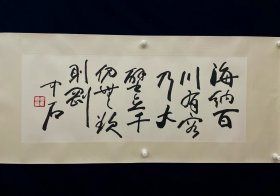 海纳百
川有容
乃大
壁立千
仞无欲
则刚
中石